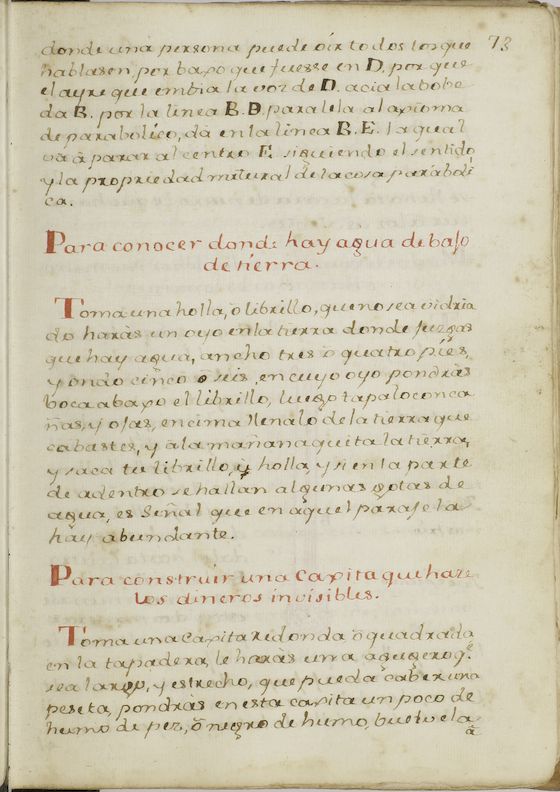 73
donde una persona puede oír todos los que
hablasen por baxo que fuesse en D. por que
el ayre que embia la voz de D. acia la bobe
da B. por la linea B. D. paralela al axioma
de parabolico, da en la linea B. E. la qual
và à parar al centro E. siguiendo el sentido
y la propriedad natural de la cosa parabóli
ca.
Para conocer donde hay agua debajo
de tierra.
Toma una holla, ò librillo, que no sea vidria
do haràs un oyo en la tierra donde juzgas
que hay agua, ancho tres ò quatro pies,
y ondo cinco ò seis, en cuyo oyo pondràs
boca abaxo el librillo, luego tapalo con ca
ñas, y ojas, encima llenalo de la tierra que
cabastes, y a la mañana quita la tierra,
y saca tu librillo, ù holla, y si en la parte
de adentro se hallan algunas gotas de
agua, es señal que en aquel paraje la
hay abundante.
Para construir una Caxita que haze
los dineros invisibles.
Toma una Caxita redonda, ò quadrada
en la tapadera, le haràs una aguxero q.e
sea largo, y estrecho, que pueda caber una
peseta, pondràs en esta caxita un poco de
humo de pez, ò negro de humo, buelvela
à